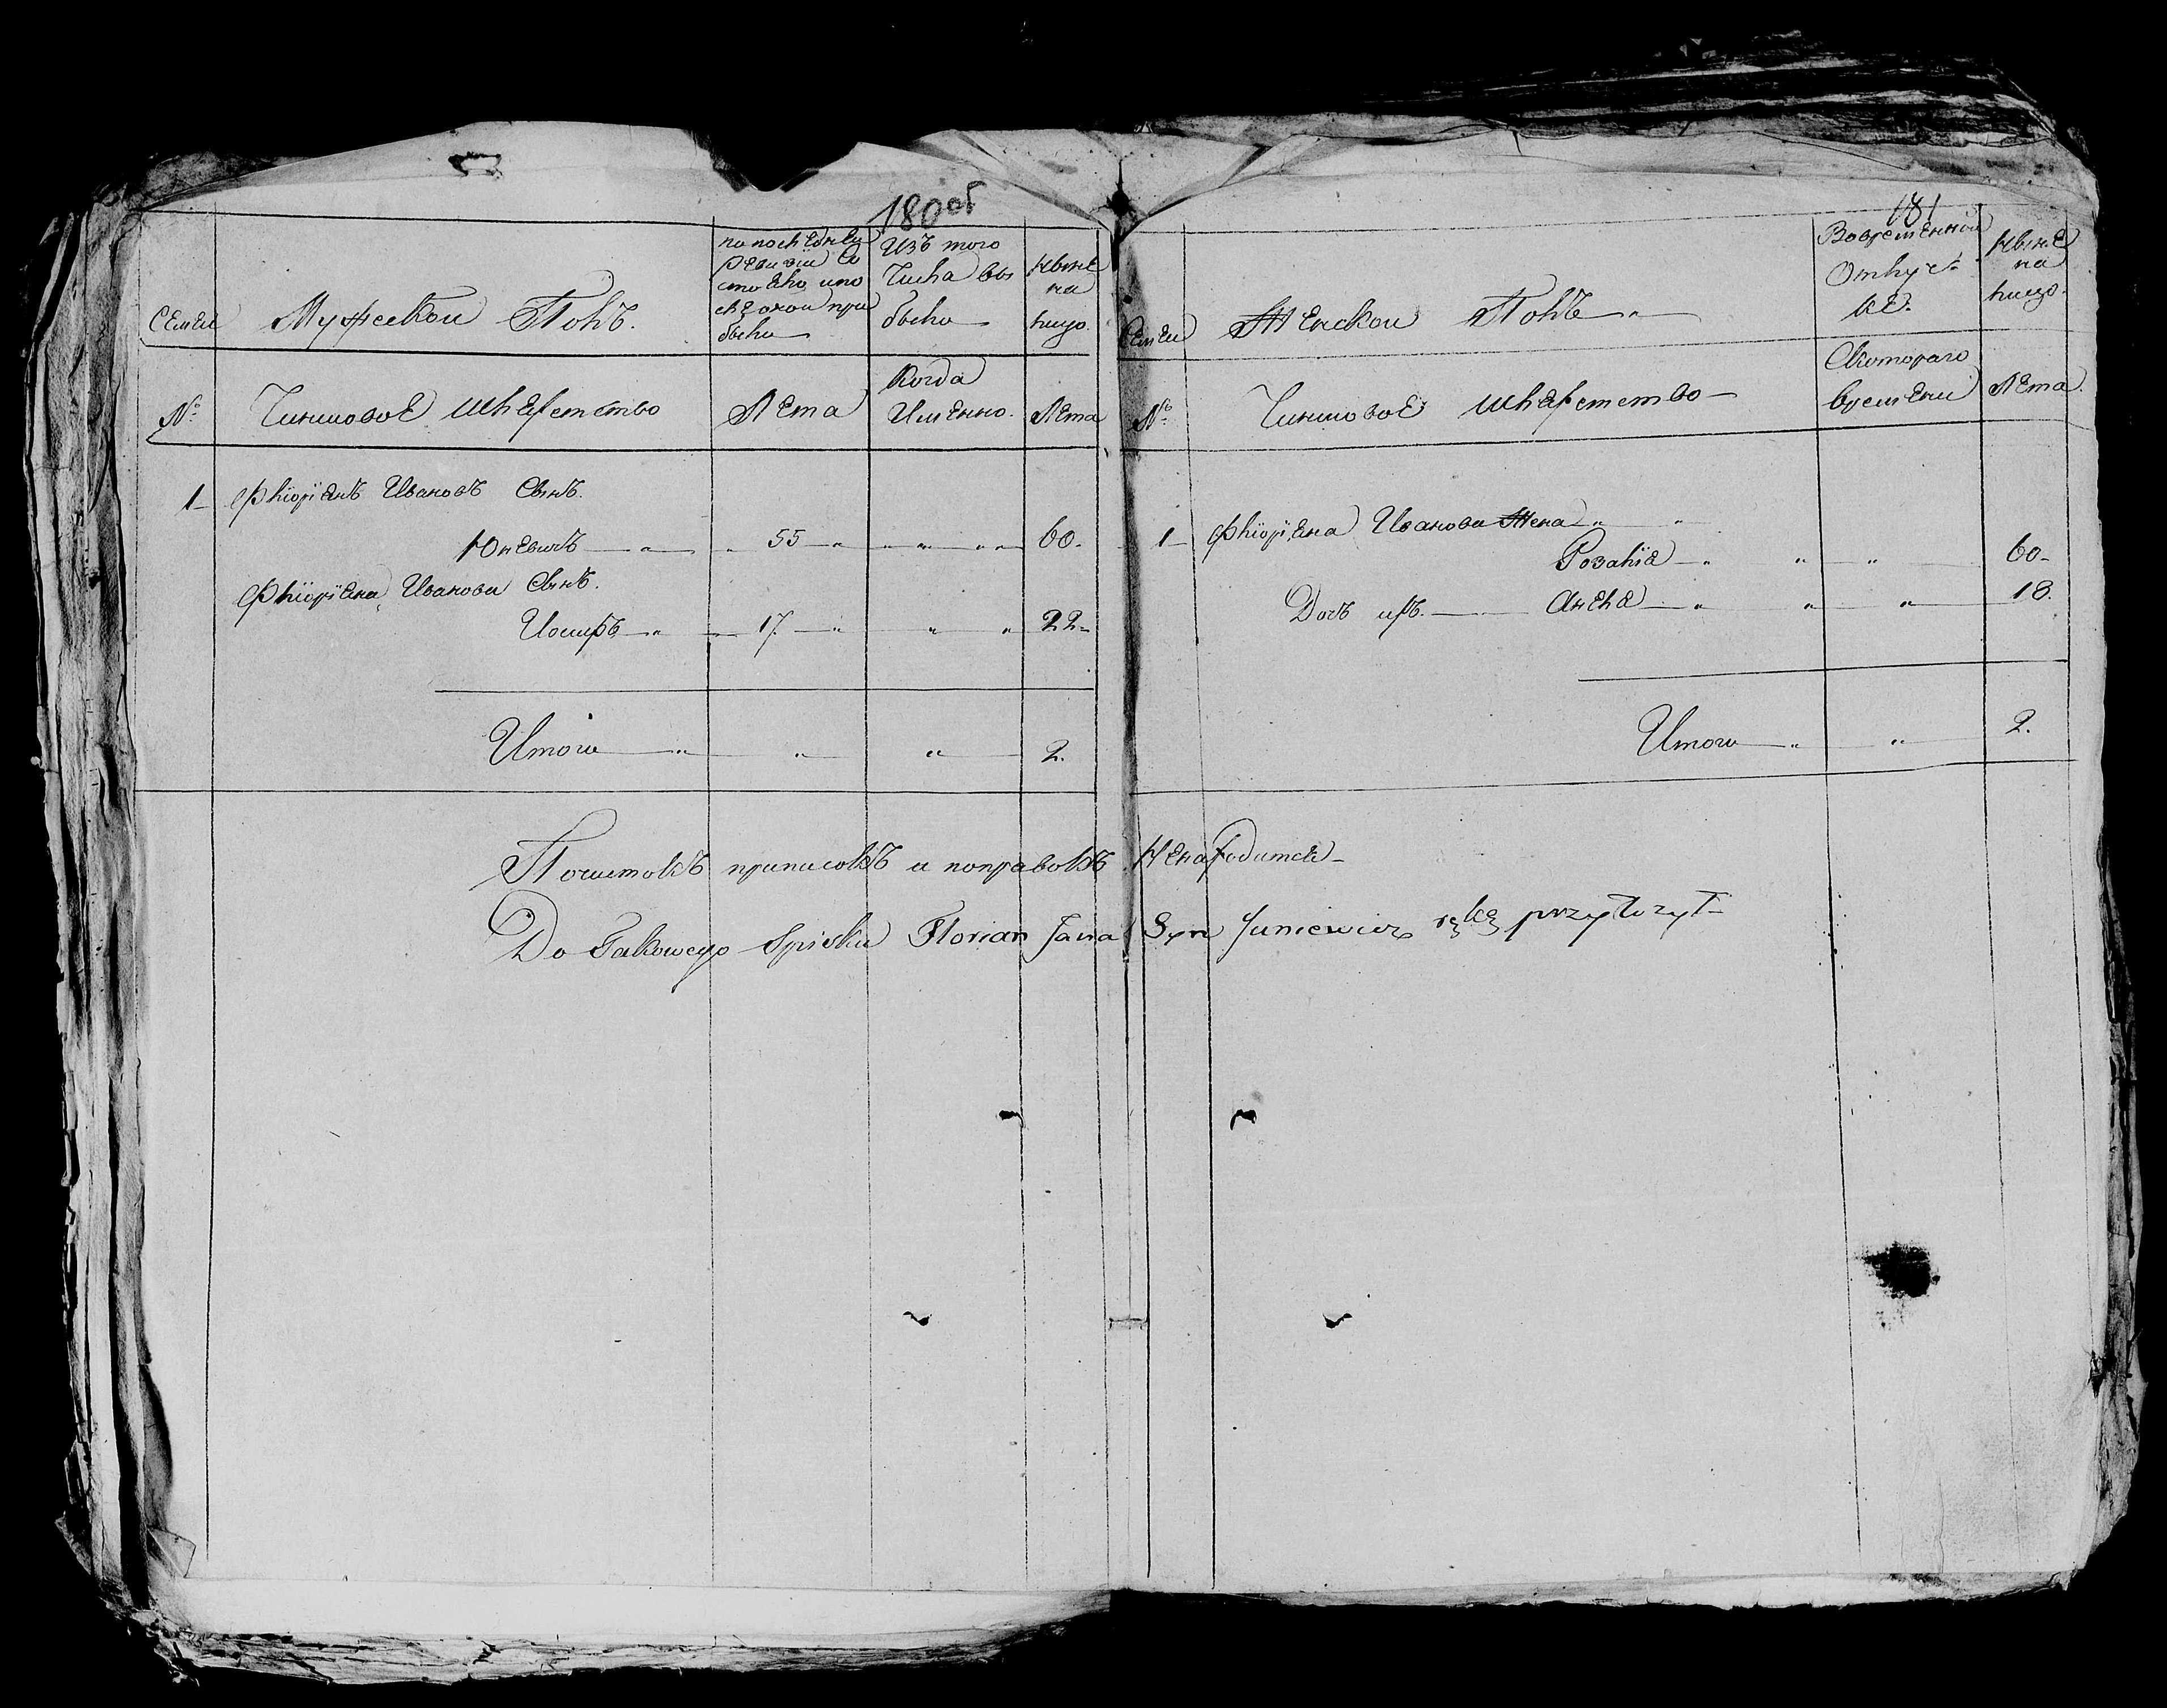 180об
Семьи
Мужеской Полъ.
по последней
ревизіи со
стояло и по
следохои при
было
Изъ того
Числа вы
было
Ныне
на
лицо.
№
Чиншовое шляхетство
Лета
Когда
Именно.
Лета
1 Флоріянъ Ивановъ Сынъ.
Юневичъ — „ — 55 — „ — „ — 60.
Флоріяна Иванова Сынъ.
Иосифъ — „ — 17. — „ „ „ 22
Итого — „ — „ — „ — 2.
181
Семьи
Женской Полъ — „ —
Вовременной
Отлуч-
ке.
Ныне
на
лицо.
№
Чиншовое шляхетство —
Скотораго
времени
Лета.
1 Флоріяна Иванова Жена — „ „
Розалія — „ „ — „ — 60
Дочъ ихъ. — Анеля — „ — „ — „ — 18.
Итого — „ — „ — 2.
Почистокъ приписокъ и поправокъ Ненаходится —
Do Takowego Spisku Florian Jana Syn Juniewicz rękę przyłożył —